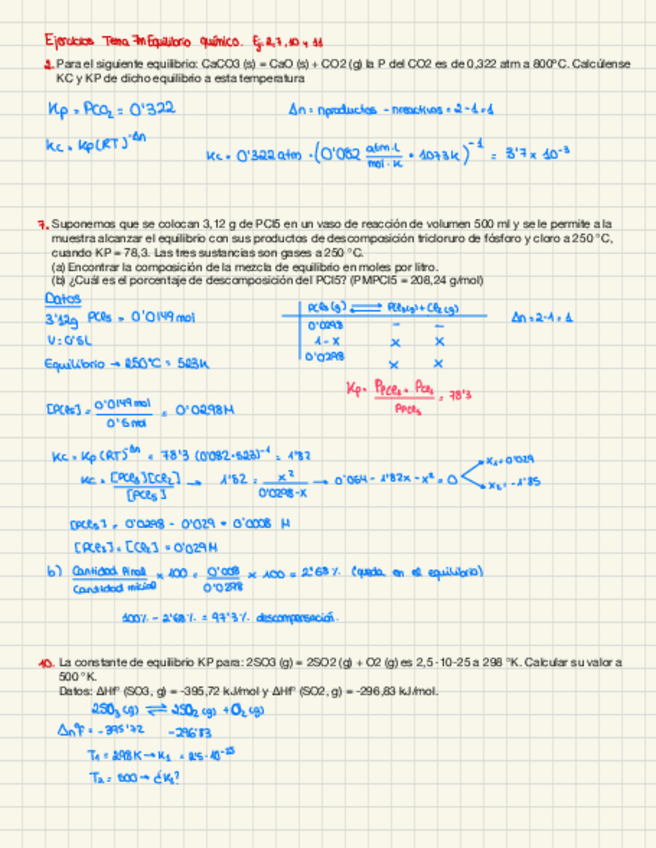 Ejercicios Tema 7 Equilibrio químico. Ej: 2, 7, 10 y 11
2. Para el siguiente equilibrio: CaCO3 (s) = CaO (s) + CO2 (g) la P del CO2 es de 0,322 atm a 800°C. Calcúlense
KC y KP de dicho equilibrio a esta temperatura
Kp = PCO₂ = 0'322
Δn = nproductos - nreactivos = 2-1=1
Kc = Kp(RT)^-Δn
Kc = 0'322 atm · (0'082 atm·L/mol·K · 1073K)^-1 = 3'7 × 10^-3
7. Suponemos que se colocan 3,12 g de PCl5 en un vaso de reacción de volumen 500 ml y se le permite a la
muestra alcanzar el equilibrio con sus productos de descomposición tricloruro de fósforo y cloro a 250 °C,
cuando KP = 78,3. Las tres sustancias son gases a 250 °C.
(a) Encontrar la composición de la mezcla de equilibrio en moles por litro.
(b) ¿Cuál es el porcentaje de descomposición del PCl5? (PMPCl5 = 208,24 g/mol)
Datos
3'12g PCl₅ = 0'0149 mol
V = 0'5L
Equilibrio → 250°C = 523K
PCl₅(g) ⇄ PCl₃(g) + Cl₂(g)
0'0298 - -
1-X X X
0'0298 X X
Δn = 2-1 = 1
Kp = PPCl₃ · PCl₂ / PPCl₅ = 78'3
[PCl₅] = 0'0149 mol / 0'5 mol = 0'0298M
Kc = Kp(RT)^-Δn = 78'3 (0'082·523)^-1 = 1'82
Kc = [PCl₃][Cl₂] / [PCl₅] → 1'82 = x² / 0'0298-x → 0'054 - 1'82x - x² = 0
x₁ = 0'029
x₂ = -1'85
[PCl₅] = 0'0298 - 0'029 = 0'0008 M
[PCl₃] = [Cl₂] = 0'029M
b) Cantidad final / Cantidad inicial × 100 = 0'008 / 0'0298 × 100 = 2'68% (queda en el equilibrio)
100% - 2'68% = 97'3% descomposición.
10. La constante de equilibrio KP para: 2SO3 (g) = 2SO2 (g) + O2 (g) es 2,5 · 10-25 a 298 °K. Calcular su valor a
500 °K.
Datos: ΔHfº (SO3, g) = -395,72 kJ/mol y ΔHfº (SO2, g) = -296,83 kJ/mol.
2SO₃(g) ⇄ 2SO₂(g) + O₂(g)
-395'72 -296'83
T₁ = 298K → K₁ = 2'5·10^-25
T₂ = 500 → ¿K₂?